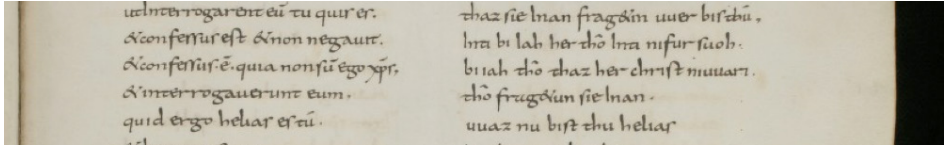 utInterrogarent eū tu quis es.
&confessus est &non negauit.
&confessus ē. quia non sū ego xp̄s,
&interrogauerunt eum.
quid ergo helias es tū.
thaz sie Inan frag&in uuer bist thū,
Inti bi iah her thō Inti ni fur suoh.
bi iah thō thaz her christ ni uuari.
thō frag&un sie Inan.
uuaz nu bist thu helias